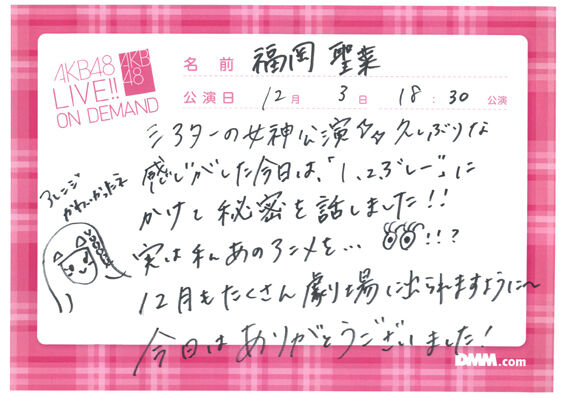 AKB48
LIVE!!
ON DEMAND
AKB
48
名前 福岡 聖菜
公演日 12月 3日 18:30 公演
シアターの女神公演☆☆久しぶりな
感じがした今日は、「1、2、3しー」に
かけて秘密を話しました!!
実は私あのアニメを… !!?
12月もたくさん劇場に出られますように〜
今日はありがとうございました!
アレンジ
かわいかったえ
DMM.com